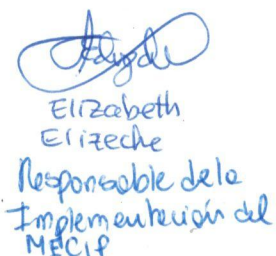 Elizabeth
Elizeche
Responsable dela
Implementación del
MECIP